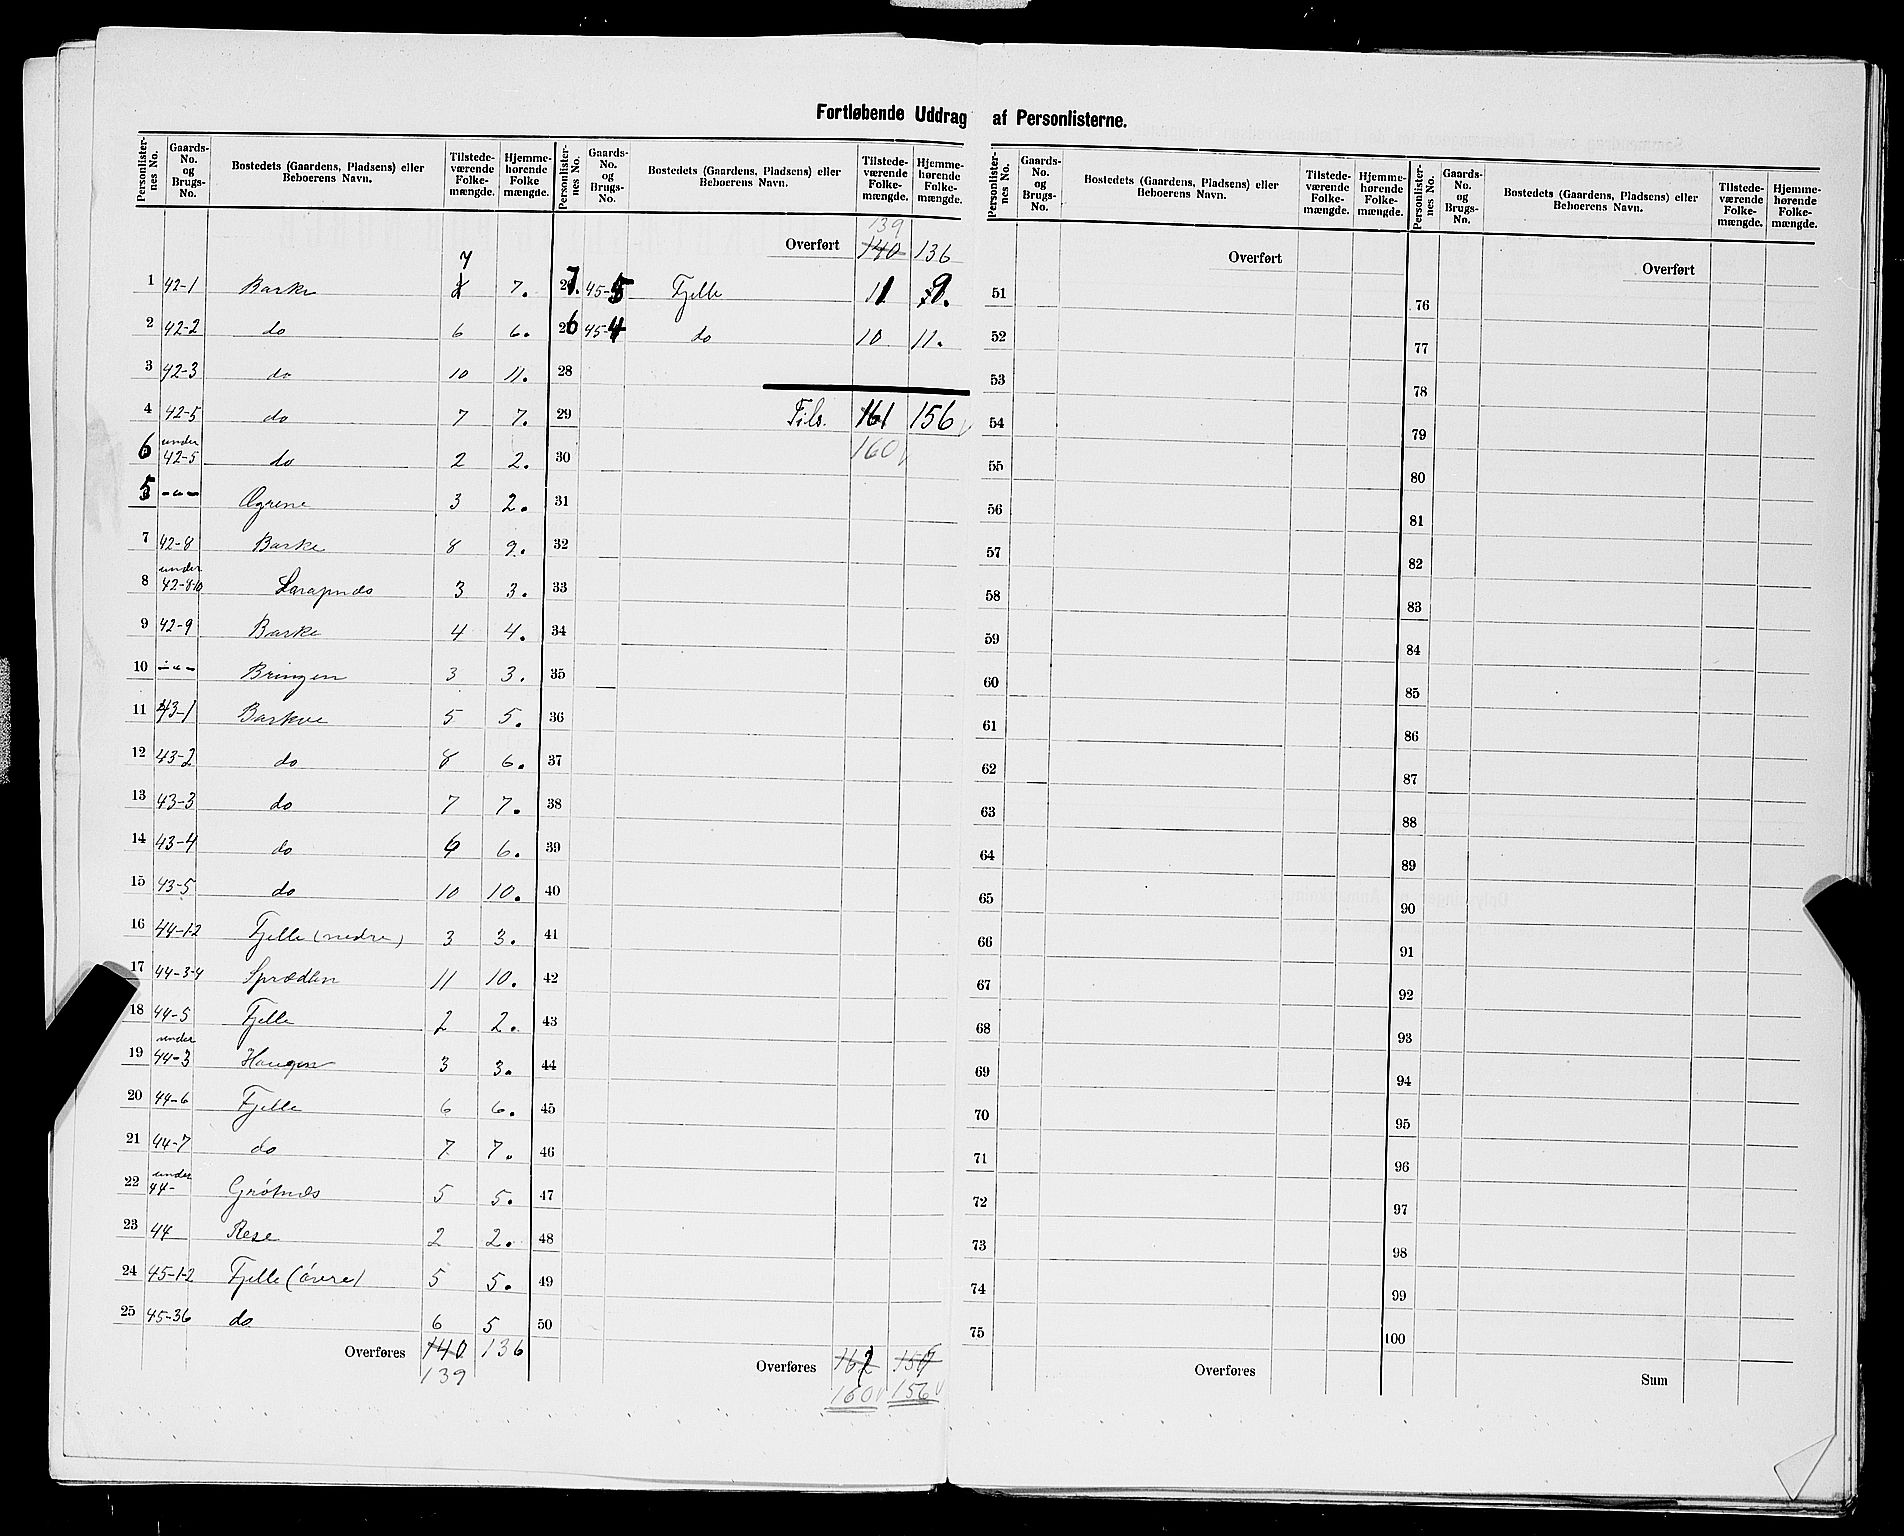 Fortløbende Uddrag af Personlisterne.
Personlister-nes No. Gaards-No. og Brugs-No. Bostedets (Gaardens, Pladsens) eller Beboerens Navn. Tilstede-værende Folke-mængde. Hjemme-hørende Folke mængde.
1 42-1 Barke 7 7.
2 42-2 do 6 6.
3 42-3 do 10 11.
4 42-5 do 7 7.
6 under 42-5 do 2 2.
5 -"- Øgrene 3 2.
7 42-8 Barke 8 9.
8 under 42-8-10 3 3.
9 42-9 Barke 4 4.
10 -"- Bringen 3 3.
11 43-1 Barkve 5 5.
12 43-2 do 8 6.
13 43-3 do 7 7.
14 43-4 do 6 6.
15 43-5 do 10 10.
16 44-1-2 Fjelle (nedre) 3 3.
17 44-3-4 Sprædlen 11 10.
18 44-5 Fjelle 2 2.
19 under 44-3 Haugen 3 3.
20 44-6 Fjelle 6 6.
21 44-7 do 7 7.
22 under 44- Grótnæs 5 5.
23 44 Rese 2 2.
24 45-1-2 Fjelle (óvre) 5 5.
25 45-36 do 6 5
Overføres 140 136
139
Personlister-nes No. Gaards-No. og Brugs-No. Bostedets (Gaardens, Pladsens) eller Beboerens Navn. Tilstede-værende Folke-mængde. Hjemme-hørende Folke-mængde.
139
Overført 140 136
27. 45-5 Fjelle 11 9.
26 45-4 do 10 11.
28
29 Tils. 161 156 v
30 160 v
31
32
33
34
35
36
37
38
39
40
41
42
43
44
45
46
47
48
49
50
Overføres 162 157
160 v 156 v
Personlister-nes No. Gaards-No. og Brugs-No. Bostedets (Gaardens, Pladsens) eller Beboerens Navn. Tilstede-værende Folke-mængde. Hjemme-hørende Folke-mængde.
Overført
51
52
53
54
55
56
57
58
59
60
61
62
63
64
65
66
67
68
69
70
71
72
73
74
75
Overføres
Personlister-nes No. Gaards-No. og Brugs-No. Bostedets (Gaardens, Pladsens) eller Beboerens Navn. Tilstede-værende Folke-mængde. Hjemme-hørende Folke-mængde.
Overført
76
77
78
79
80
81
82
83
84
85
86
87
88
89
90
91
92
93
94
95
96
97
98
99
100
Sum